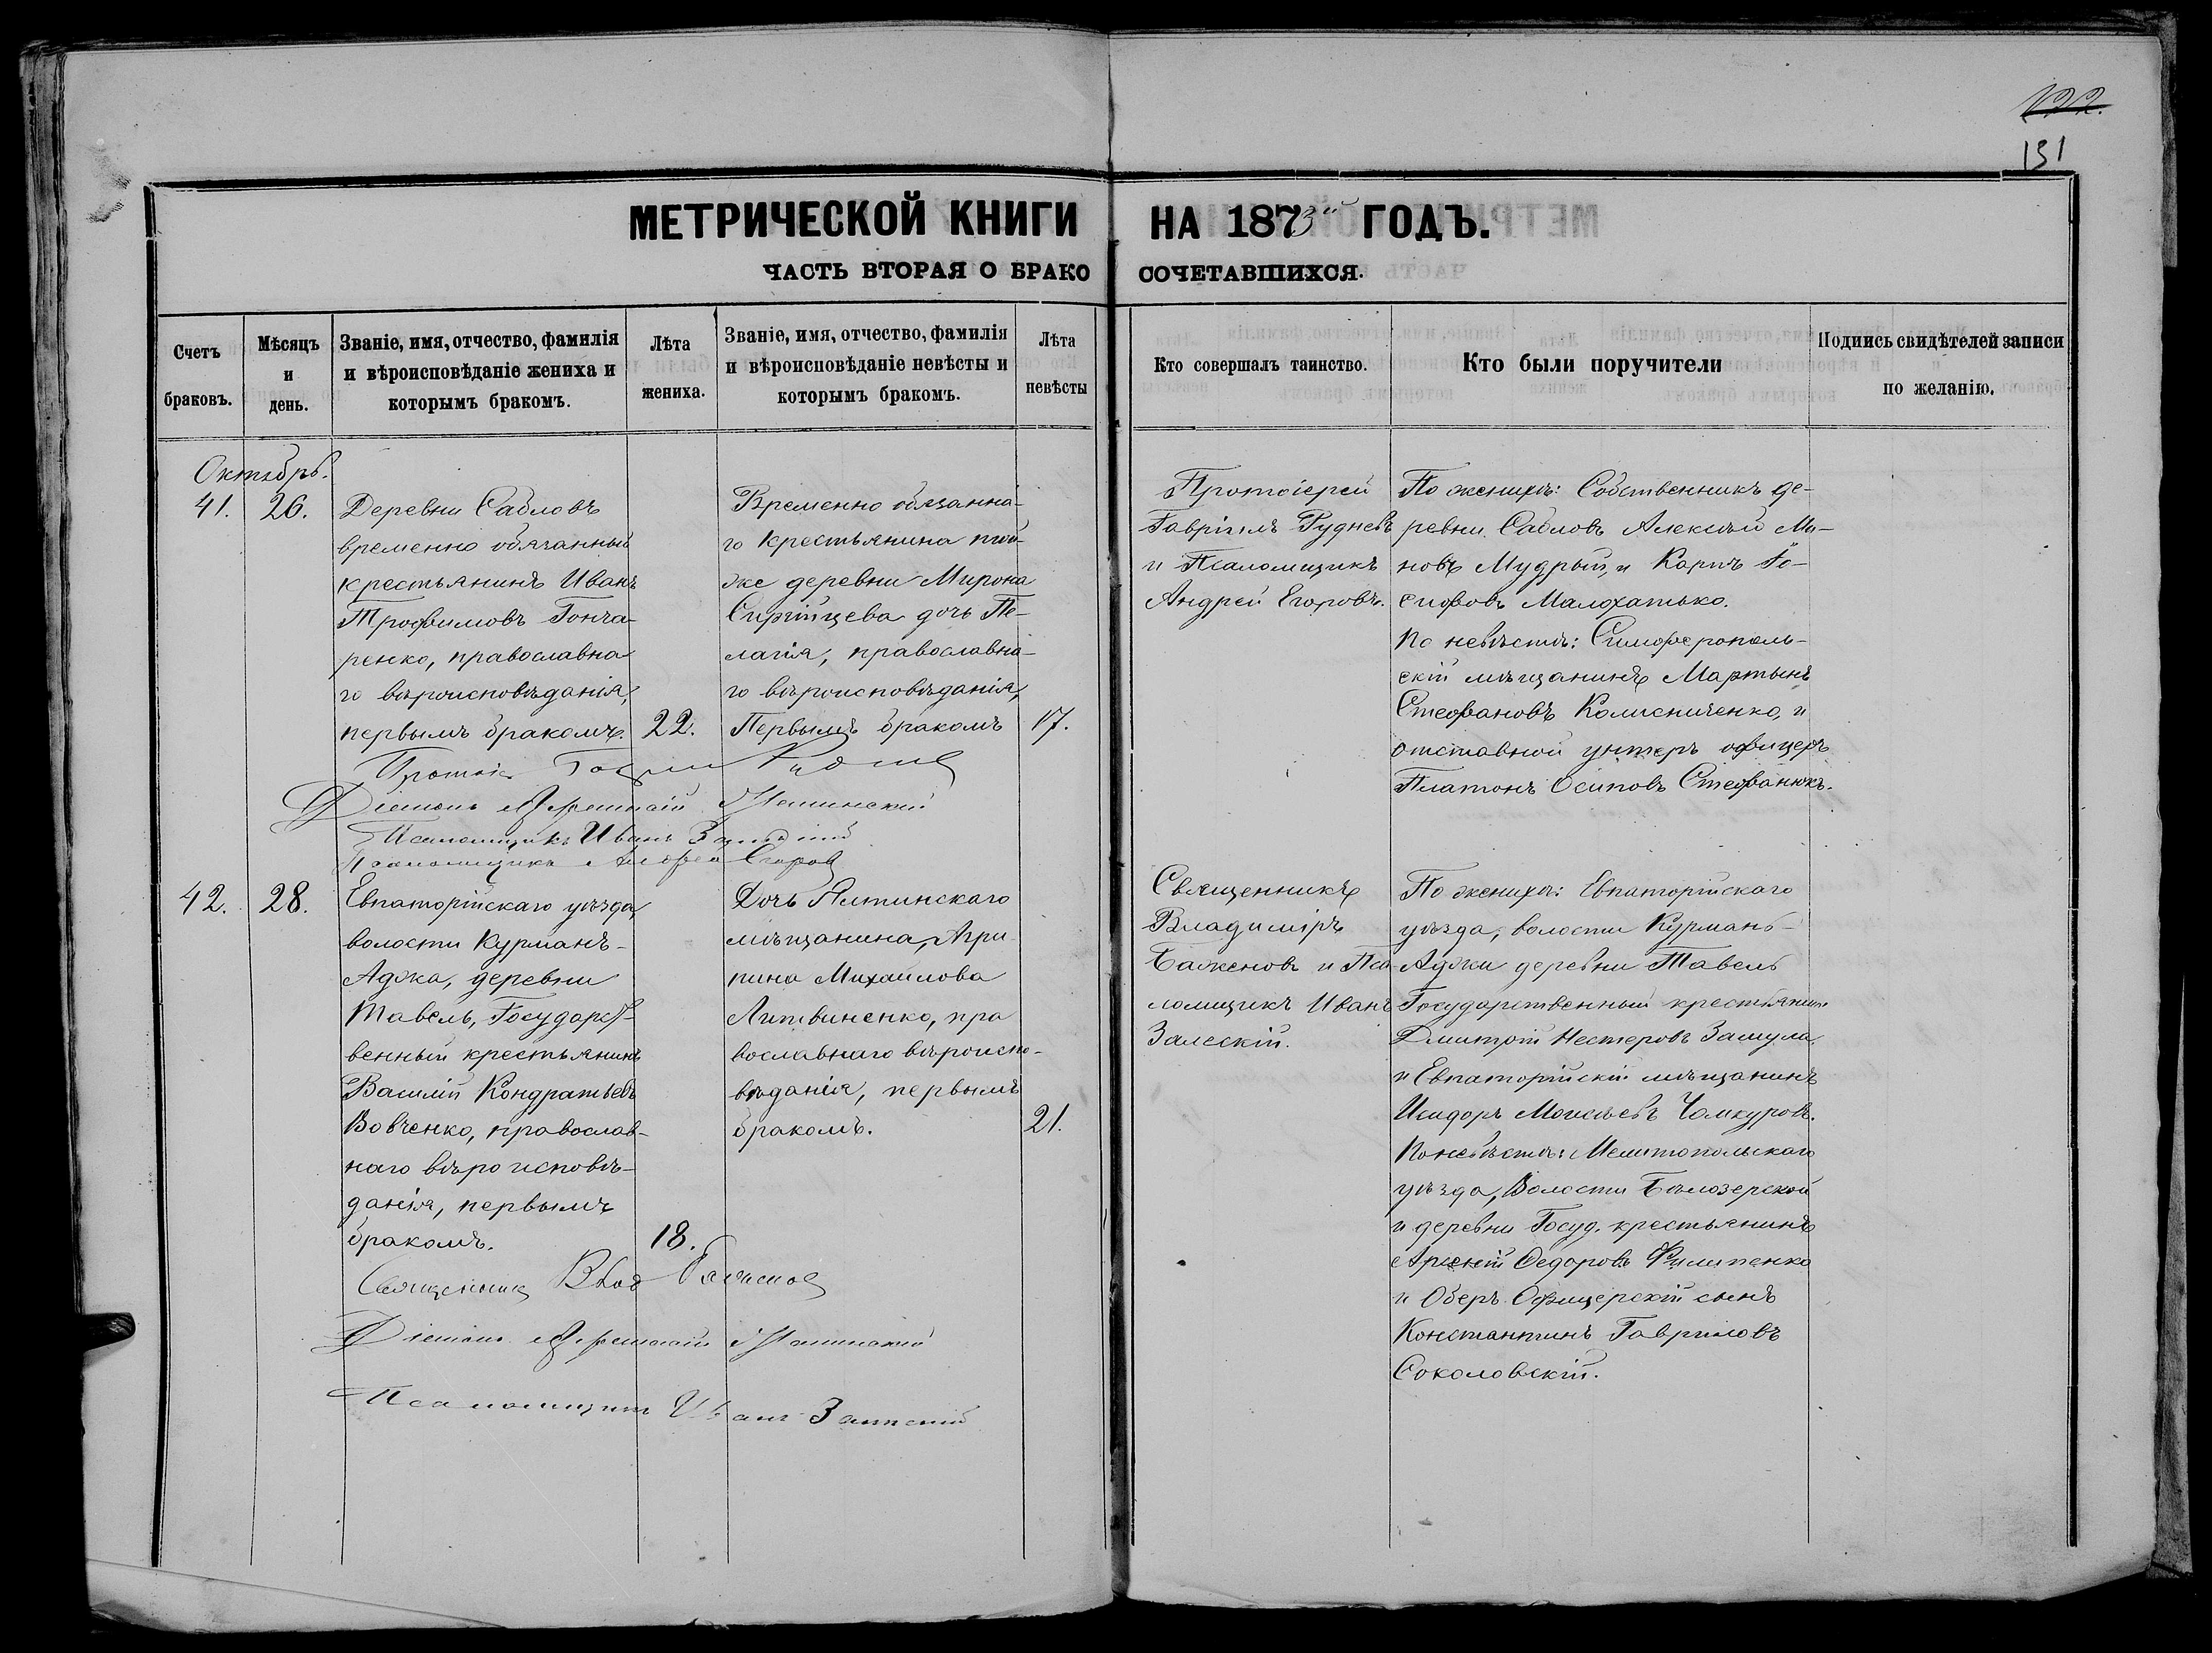 122.
131
МЕТРИЧЕСКОЙ КНИГИ НА 1873й ГОДЪ.
ЧАСТЬ ВТОРАЯ О БРАКОСОЧЕТАВШИХСЯ.
Счетъ браковъ.
Мѣсяцъ и день.
Званіе, имя, отчество, фамилія
и вѣроисповѣданіе жениха и
которымъ бракомъ.
Лѣта
жениха.
Званіе, имя, отчество, фамилія
и вѣроисповѣданіе невѣсты и
которымъ бракомъ.
Лѣта
невѣсты
Кто совершалъ таинство.
Кто были поручители
Подпись свидѣтелей записи
по желанію.
Октябрь.
41. 26.
Деревни Сабловъ
временно обязанный
крестьянинъ Иванъ
Трофимовъ Гонча-
ренко, православна
го вѣроисповѣданія,
первымъ бракомъ. 22.
Временно обязанна-
го крестьянина той-
же деревни Мирона
дочь Пе-
лагія, православна-
го вѣроисповѣданія,
Первымъ бракомъ 17.
Протоіерей
Гавріилъ Рудневъ
и Псаломщикъ
Андрей Егоровъ.
По женихѣ: Собственникъ де-
ревни Сабловъ Алексѣй Ми-
новъ Мудрый, и Карпъ Іо-
сифовъ Малохатько.
По невѣстѣ: Симферополь-
скій мѣщанинъ Мартынъ
Стефановъ Колисниченко, и
отставной унтеръ офицеръ
Платонъ Осиповъ Стефанюкъ.
Діаконъ
Псаломщикъ Иванъ Залѣскій
Псаломщикъ Андрей Егоровъ
42. 28.
Евпаторійскаго уѣзда,
волости Курманъ-
Аджа, деревни
Тавель, Государст-
венный крестьянинъ
Василій Кондратьевъ
Вовченко, православ-
наго вѣроисповѣ-
данія, первымъ
бракомъ. 18.
Дочь Ялтинскаго
мѣщанина, Агри-
пина Михаилова
Литвиненко, пра
вославнаго вѣроиспо-
вѣданія, первымъ
бракомъ. 21.
Священникъ
Владиміръ
Баженовъ и Пса-
ломщикъ Иванъ
Залескій.
По женихѣ: Евпаторійскаго
уѣзда, волости Курманъ-
Аджи деревни Тавель
Государственный крестьянинъ
Дмитрій Нестеровъ Замула,
и Евпаторійскій мѣщанинъ
Исидоръ Моисѣевъ
По невѣстѣ: Мелитопольскаго
уѣзда, Волости Бѣлозерской
и деревни Госуд. крестьянинъ
Арсеній Ѳедоровъ Филипенко
и Оберъ-Офицерскій сынъ
Константинъ Гавриловъ
Соколовскій.
Священникъ Влад Баженовъ
Діаконъ
Псаломщикъ Иванъ Залѣскій